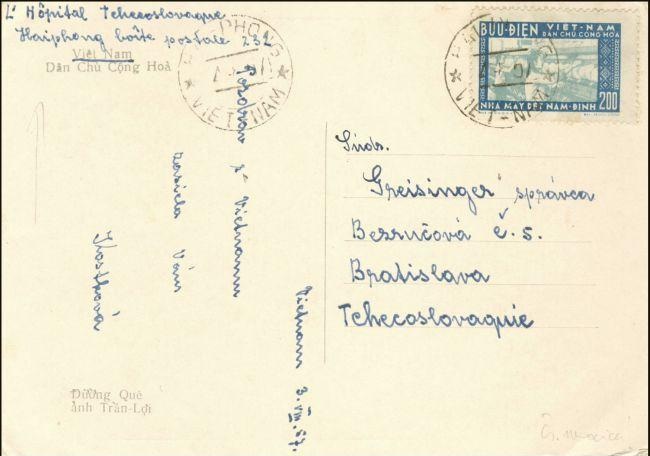 L' Hôpital Tchecoslovaque
Haiphong boîte postale 232
Việt Nam
Dân Chủ Cộng Hoà
HAIPHONG
VIET-NAM
BƯU-ĐIỆN VIỆT-NAM
DÂN CHỦ CỘNG HÒA
200
NHÀ MÁY DỆT NAM-ĐỊNH
VIET-NAM
Súdr.
Greisinger správca
Bezručová č. 5.
Bratislava
Tchecoslovaquie
Pozdrav z Vietnamu
zasiela Vám
Kostková
Vietnam 3.VIII.57.
Đường Quê
ảnh Trần-Lợi